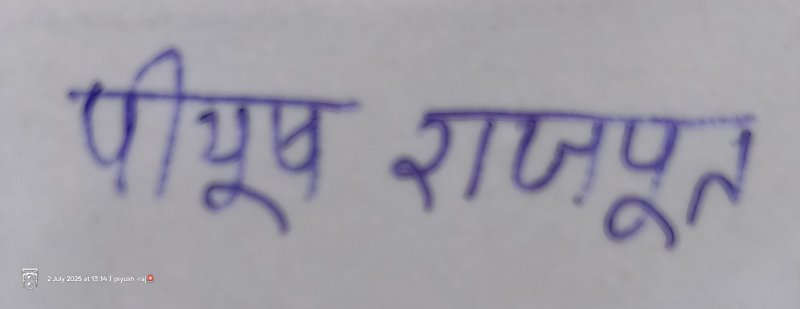 पीयूष राजपूत
2 July 2025 at 13:14 | piyush -raj